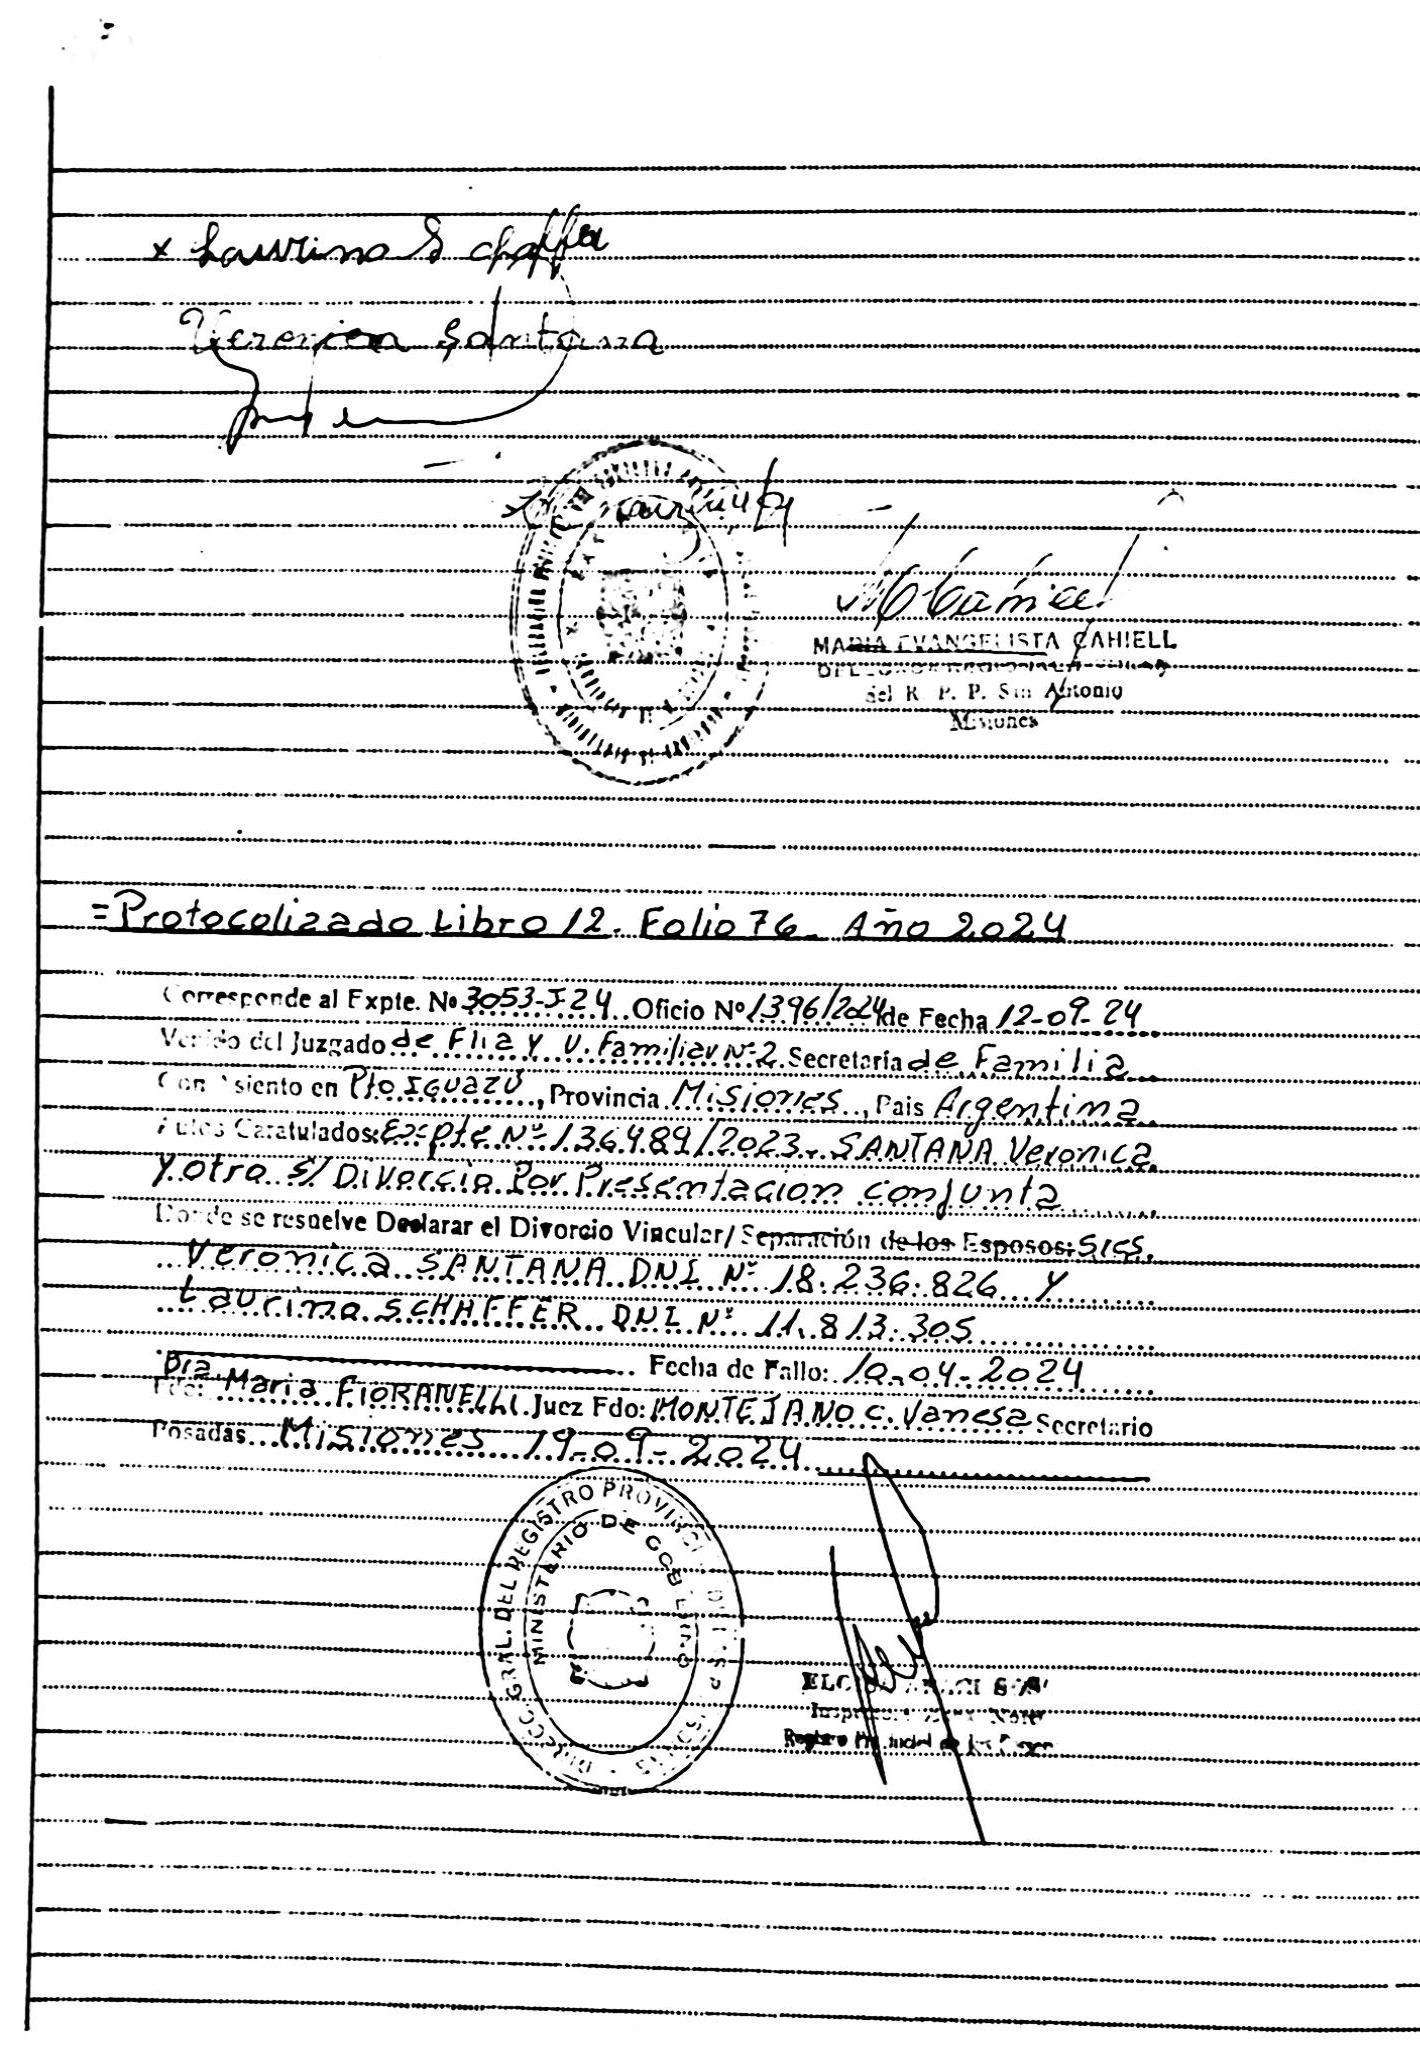 x Laurino Schaffer
Veronica Santana
MARIA EVANGELISTA CAHIELL
del R. P. P. San Antonio
Misiones
=Protocolizado Libro 12. Folio 76. Año 2024
Corresponde al Expte. Nº 3053-I-24 Oficio Nº 1396/2024 de Fecha 12-09-24
Venido del Juzgado de Flia y V. Familiar Nº 2 Secretaría de Familia
Con Asiento en Pto Iguazú, Provincia Misiones, Pais Argentina
Autos Caratulados: Expte Nº 136489/2023. SANTANA Veronica
y otro s/ Divorcio Por Presentacion conjunta
Donde se resuelve Declarar el Divorcio Vincular/ Separación de los Esposos: Sres.
Veronica SANTANA DNI Nº 18.236.826 y
Laurino SCHAFFER DNI Nº 11.813.305
Fecha de Fallo: 10-04-2024
Fdo: Dra Maria FIORANELLI Juez Fdo: MONTEJANO C. Vanesa Secretario
Posadas Misiones 19-09-2024
DIRECC. GRAL. DEL REGISTRO PROVINCIAL
MINISTERIO DE GOBIERNO